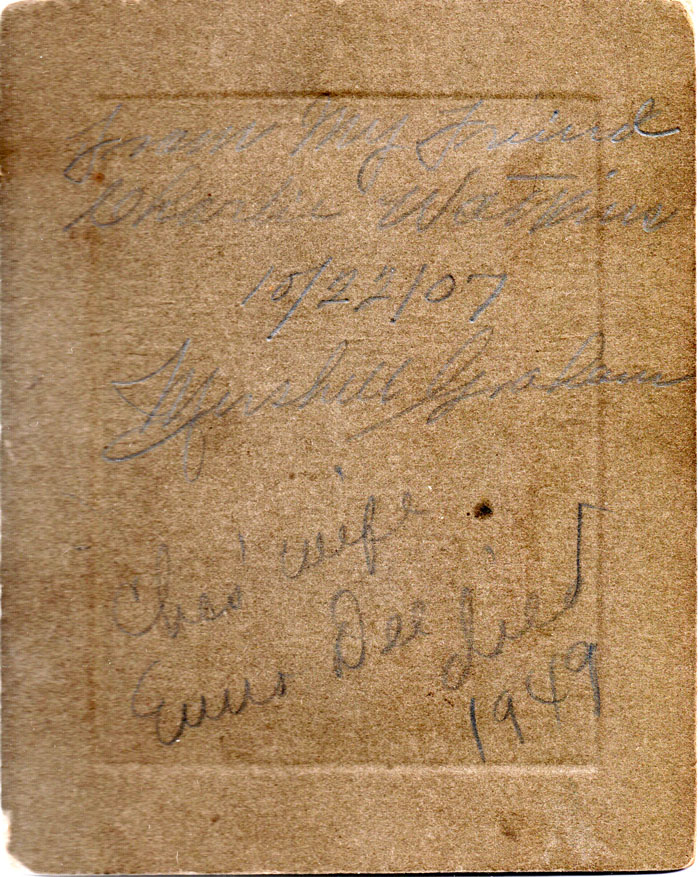 From My Friend
Charlie Watkins
10/22/07
Marshall Graham
Chas' wife
Dee died
1949